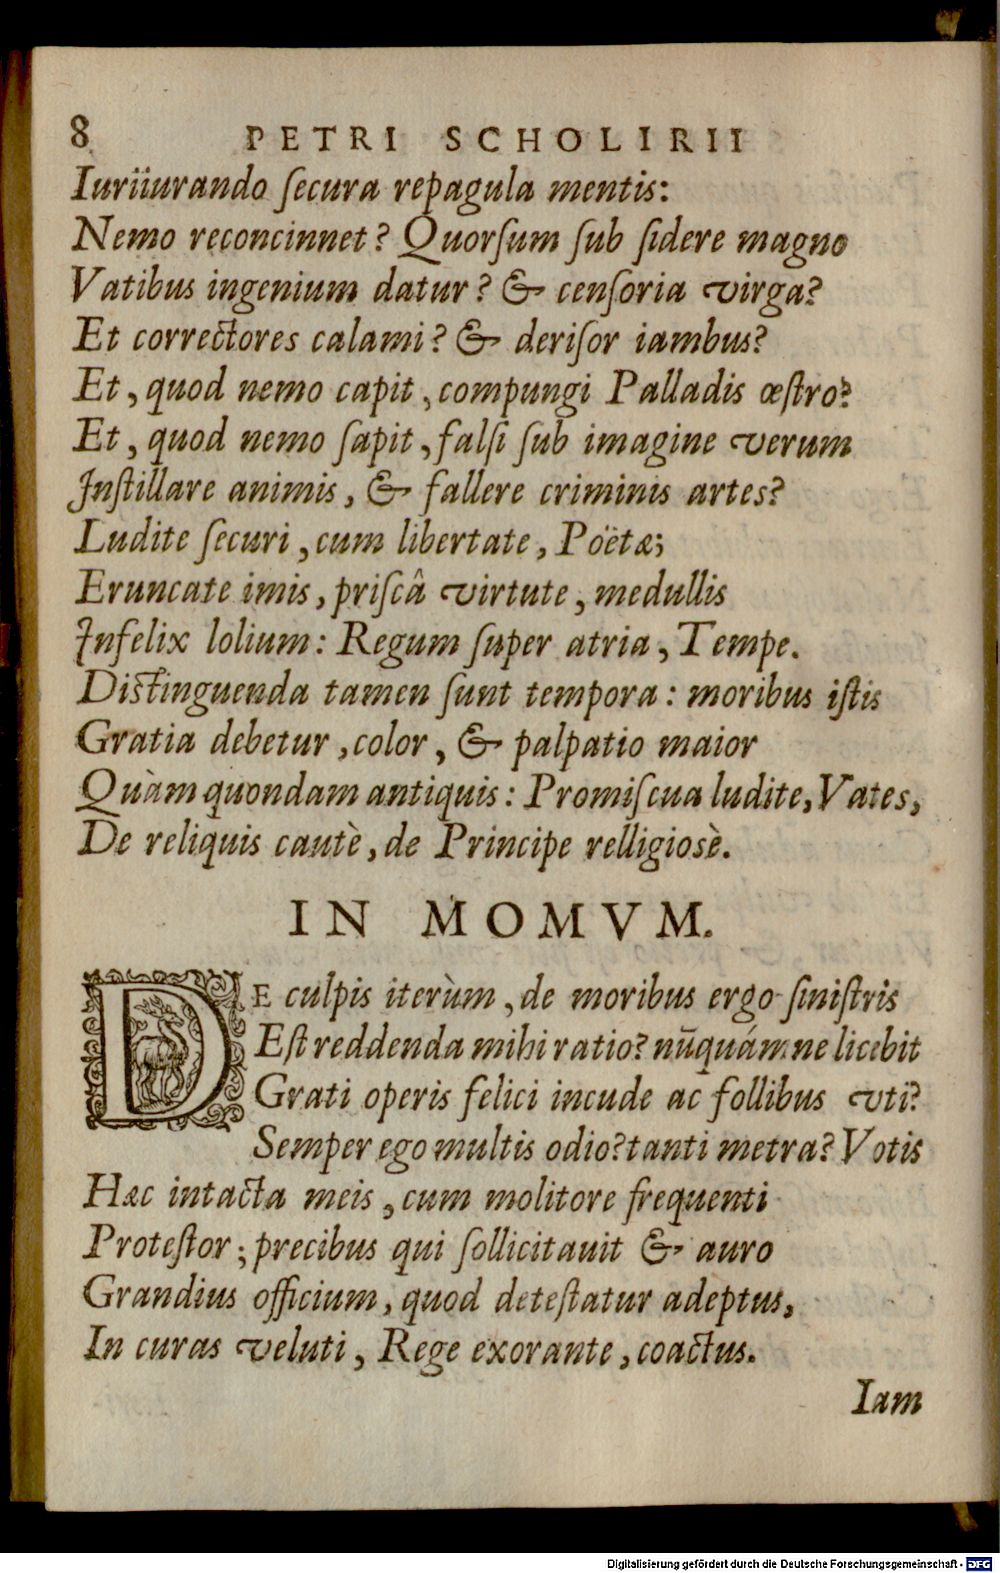 8 PETRI SCHOLIRII
Iuriiurando ſecura repagula mentis:
Nemo reconcinnet? Quorſum ſub ſidere magno
Vatibus ingenium datur? & cenſoria virga?
Et correctores calami? & deriſor iambus?
Et, quod nemo capit, compungi Palladis œſtro?
Et, quod nemo ſapit, falſi ſub imagine verum
Inſtillare animis, & fallere criminis artes?
Ludite ſecuri, cum libertate, Poëtæ;
Eruncate imis, priſcâ virtute, medullis
Infelix lolium: Regum ſuper atria, Tempe.
Distinguenda tamen ſunt tempora: moribus iſtis
Gratia debetur, color, & palpatio maior
Quàm quondam antiquis: Promiſcua ludite, Vates,
De reliquis cautè, de Principe relligiosè.
IN MOMVM.
DE culpis iterùm, de moribus ergo ſiniſtris
Eſt reddenda mihi ratio? nūquámne licebit
Grati operis felici incude ac follibus vti?
Semper ego multis odio? tanti metra? Votis
Hæc intacta meis, cum molitore frequenti
Proteſtor; precibus qui ſollicitauit & auro
Grandius officium, quod deteſtatur adeptus,
In curas veluti, Rege exorante, coactus.
Iam
Digitalisierung gefördert durch die Deutsche Forschungsgemeinschaft - DFG